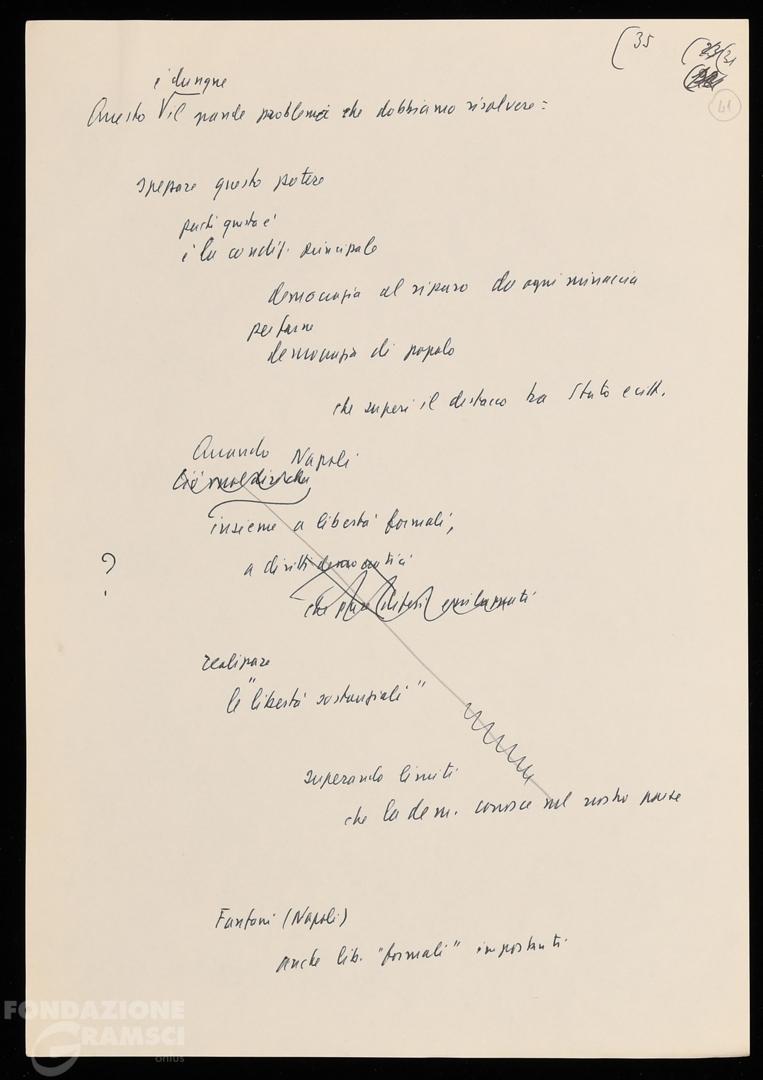 (35
(31
41
è dunque
Questo il grande problema che dobbiamo risolvere:
spezzare questo potere
perché questa è
è la condiz. principale
democrazia al riparo da ogni minaccia
per farne
democrazia di popolo
che superi il distacco tra Stato e citt.
Quando Napoli
Ciò vuol dire che
insieme a libertà formali,
a diritti democratici
?
che pure
realizzare
le "libertà sostanziali"
superando limiti
che la dem. conosce nel nostro paese
Fantoni (Napoli)
anche lib. "formali" importanti
FONDAZIONE
GRAMSCI
onlus